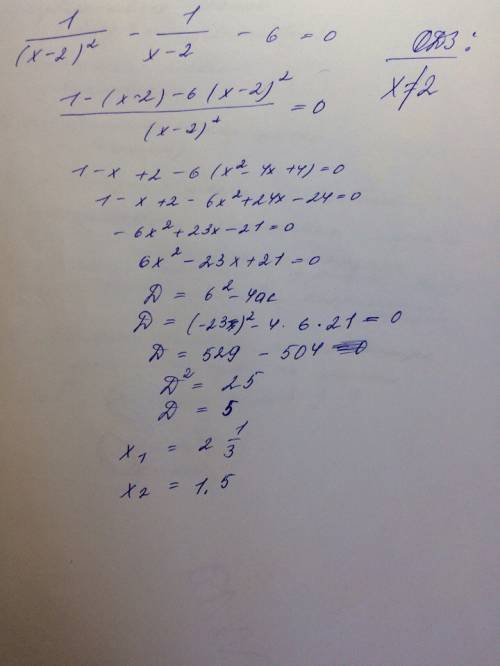 1/(x-2)² - 1/(x-2) - 6 = 0
ОДЗ:
x≠2
(1-(x-2)-6(x-2)²)/(x-2)² = 0
1-x+2-6(x²-4x+4)=0
1-x+2-6x²+24x-24=0
-6x²+23x-21=0
6x²-23x+21=0
D = b²-4ac
D = (-23)²-4·6·21=0
D = 529 - 504
D² = 25
D = 5
x₁ = 2 1/3
x₂ = 1,5